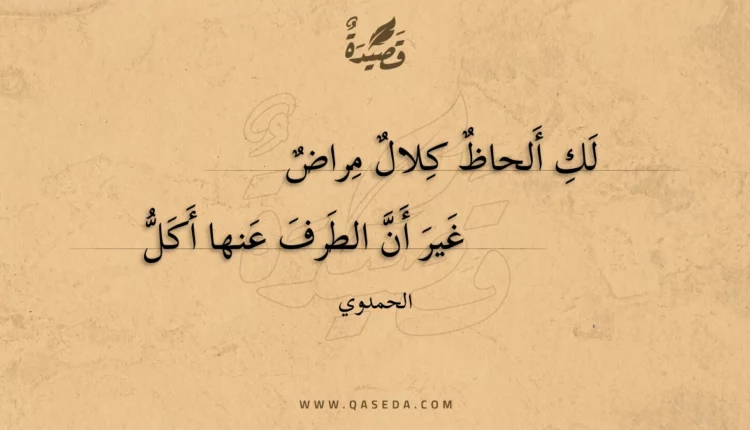 قَصِيْدَةٌ
لَكِ أَلحاظٌ كِلالٌ مِراضٌ
غَيرَ أَنَّ الطَرفَ عَنها أَكَلُّ
الحمدوي
WWW.QASEDA.COM